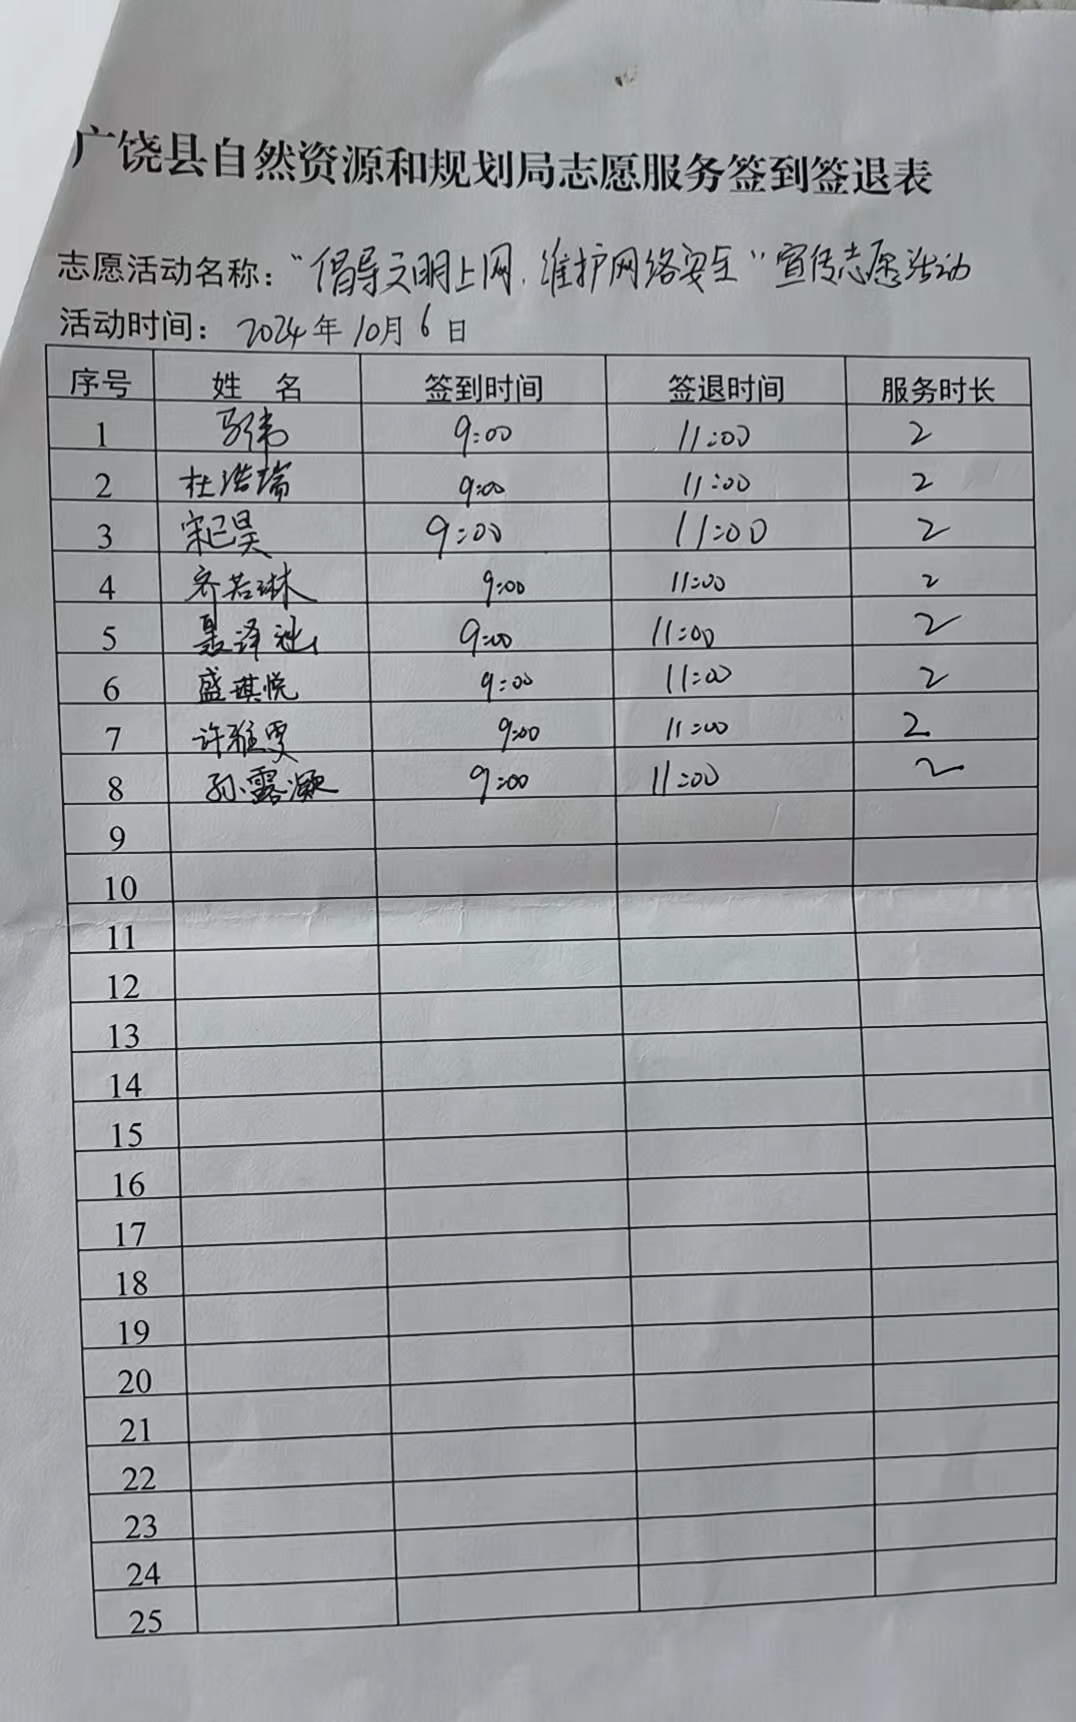 广饶县自然资源和规划局志愿服务签到签退表
志愿活动名称：“倡导文明上网，维护网络安全”宣传志愿活动
活动时间： 2024年10月6日
序号 姓 名 签到时间 签退时间 服务时长
1 马伟 9:00 11:00 2
2 杜浩瑞 9:00 11:00 2
3 宋已昊 9:00 11:00 2
4 齐若琳 9:00 11:00 2
5 聂泽 9:00 11:00 2
6 盛琪悦 9:00 11:00 2
7 许雅雯 9:00 11:00 2
8 孙露凝 9:00 11:00 2
9
10
11
12
13
14
15
16
17
18
19
20
21
22
23
24
25